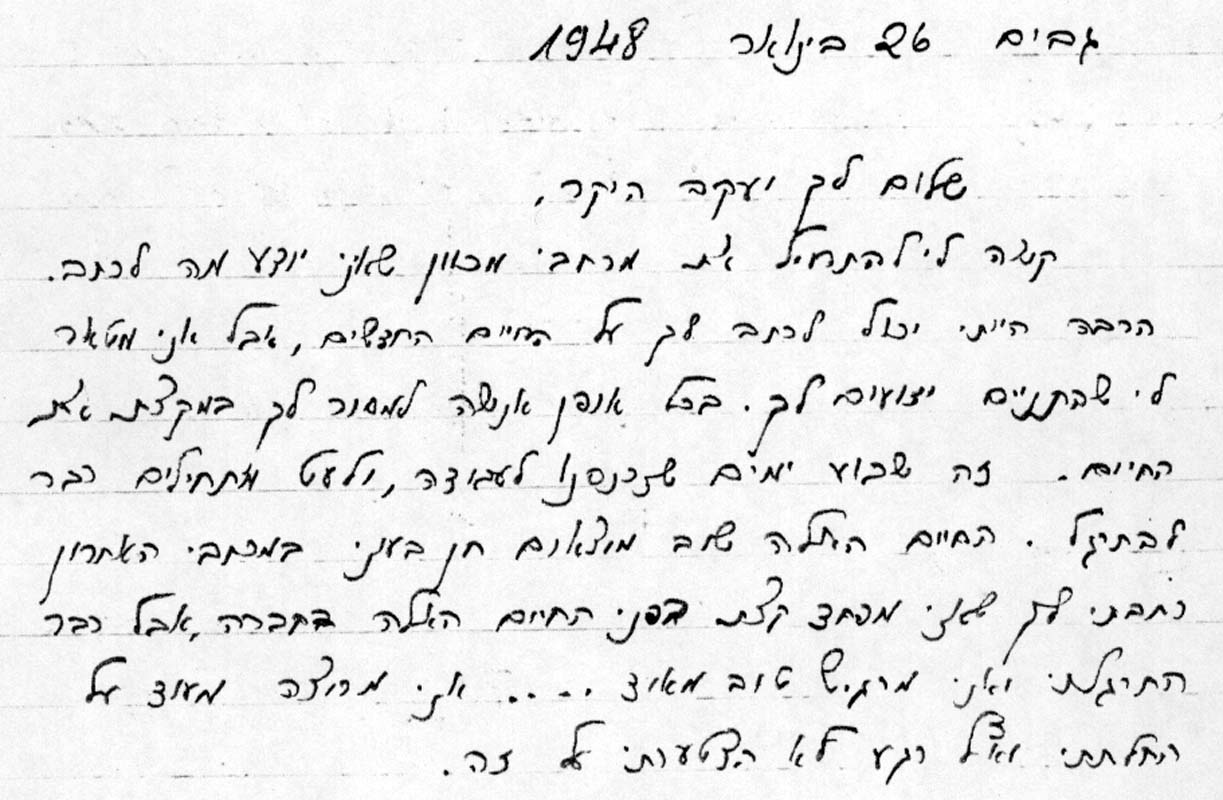 גבים 26 בינואר 1948
שלום לך יעקב היקר,
קשה לי להתחיל את מכתבי מכוון שאיני יודע מה לכתב.
הרבה הייתי יכול לכתב לך על החיים החדשים, אבל אני מטאר
לי שהתנאים ידועים לך. בכל אופן אנסה למסור לך במקצת את
החיים. זה שבוע ימים שנכנסנו לעבודה, ולעט מתחילים כבר
להתרגל. החיים האלה שוב מוצאים חן בעני במכתבי האחרון
כתבתי לך שאני מפחד קצת בפני החיים האלה בחברה, אבל כבר
התרגלתי ואני מרגיש טוב מאוד .... אני מרוצה מעוד על
החלטתי ואף רגע לא הצטערתי על זה.